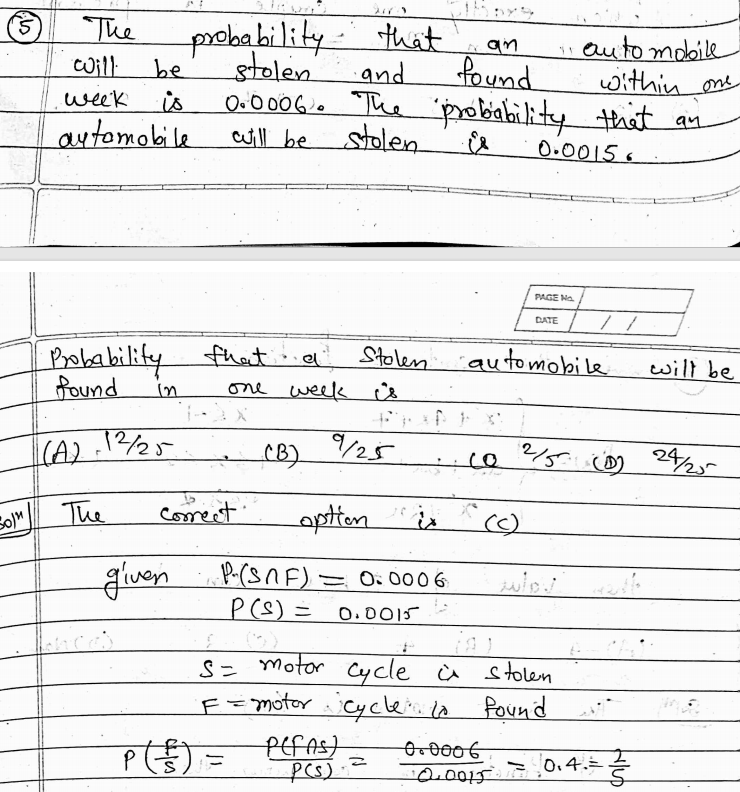 (5) The probability that an automobile
will be stolen and found within one
week is 0.0006. The probability that an
automobile will be stolen is 0.0015.
PAGE No.
DATE / /
Probability that a stolen automobile will be
found in one week is
(A) 12/25 (B) 9/25 (C) 2/5 (D) 24/25
Solⁿ The correct option is (C)
given P(S∩F) = 0.0006
P(S) = 0.0015
S = motor cycle is stolen
F = motor cycle is found
P(F/S) = P(F∩S)/P(S) = 0.0006/0.0015 = 0.4 = 2/5